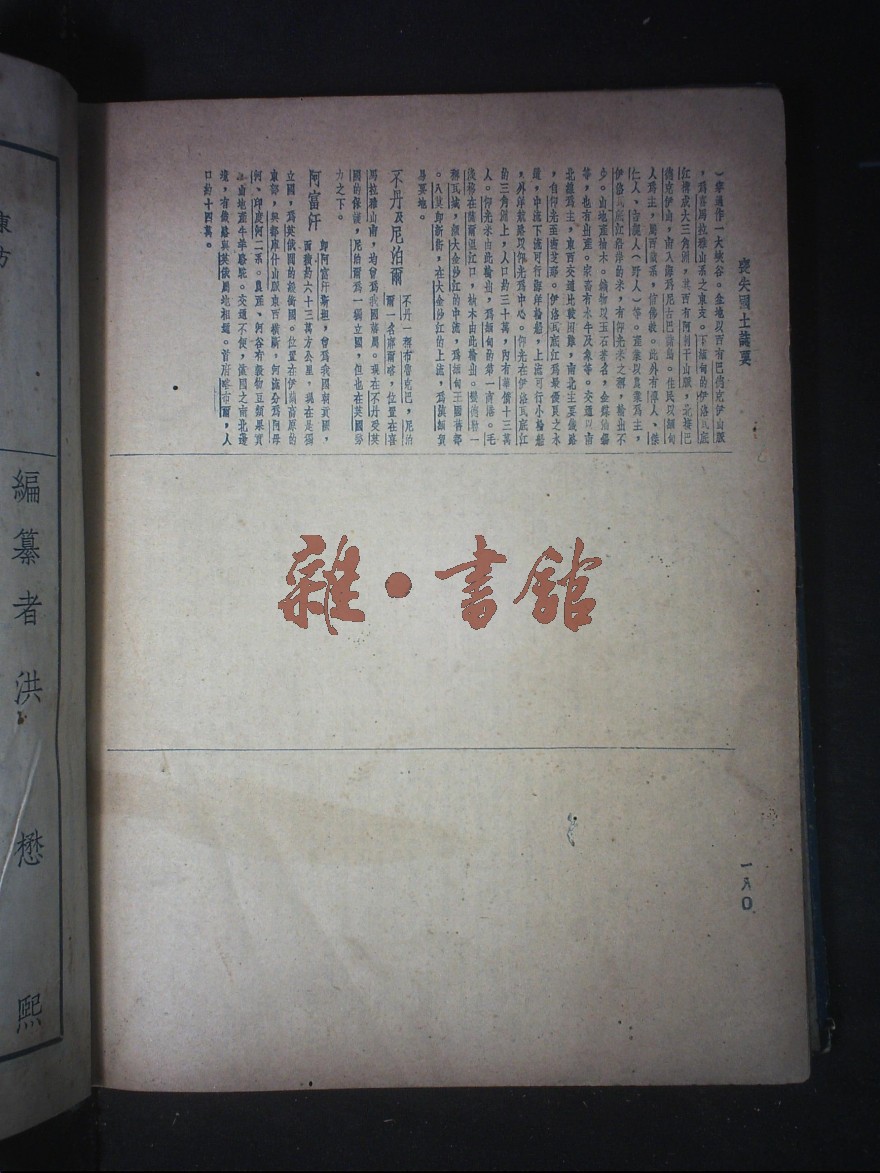 喪失國土誌要
)，摩過作一大峽谷。盆地以西有巴德克伊山脈
，為喜馬拉雅山系之東支。下緬甸的伊洛瓦底
江構成大三角洲，其西有阿剌干山脈，北接巴
德克伊山，南入海為尼古巴諸島。住民以緬甸
人為主，屬西藏系，信佛教。此外有撣人、傣
仁人、吉親人（野人）等。產業以農業為主，
伊洛瓦底江沿岸的米，有仰光米之稱，輸出不
少。山地產柚木。鑛物以玉石著名，金銀鉛錫
等，也有出產。家畜有水牛及象等。交通以南
北線為主，東西交通比較困難，南北主要鐵路
，自仰光至密芝那。伊洛瓦底江為最便良之水
道，中流下流可行海洋輪船，上流可行小輪船
，外洋航路以仰光為中心。仰光在伊洛瓦底江
的三角洲上，人口約三十萬，內有華僑十三萬
人。仰光米由此輸出，為緬甸的第一商港。毛
淡棉在薩爾溫江口，柚木由此輸出。曼德勒一
稱瓦城，組大金沙江的中流，為緬甸王國舊都
。八莫即新街，在大金沙江的上流，為滇緬貿
易要地。
不丹及尼泊爾 不丹一稱布魯克巴，尼泊
爾一名廓爾喀，位置在喜
馬拉雅山南，均曾為我國藩屬。現在不丹受英
國的保護，尼泊爾為一獨立國，但也在英國勢
力之下。
阿富汗 即阿富汗斯坦，曾為我國朝貢國，
面積約六十三萬方公里，現在是獨
立國，為英俄間的緩衝國。位置在伊蘭高原的
東部，與都庫什山脈東西橫斷。河流分為阿母
河、印度河二系。農產、河谷有穀物豆類果實
，山地產牛羊駱駝。交通不便，僅國之南北邊
境，有鐵路與英俄屬地相通。首府喀布爾，人
口約十四萬。
一八〇
雜・書舘
東方
編纂者洪懋熙